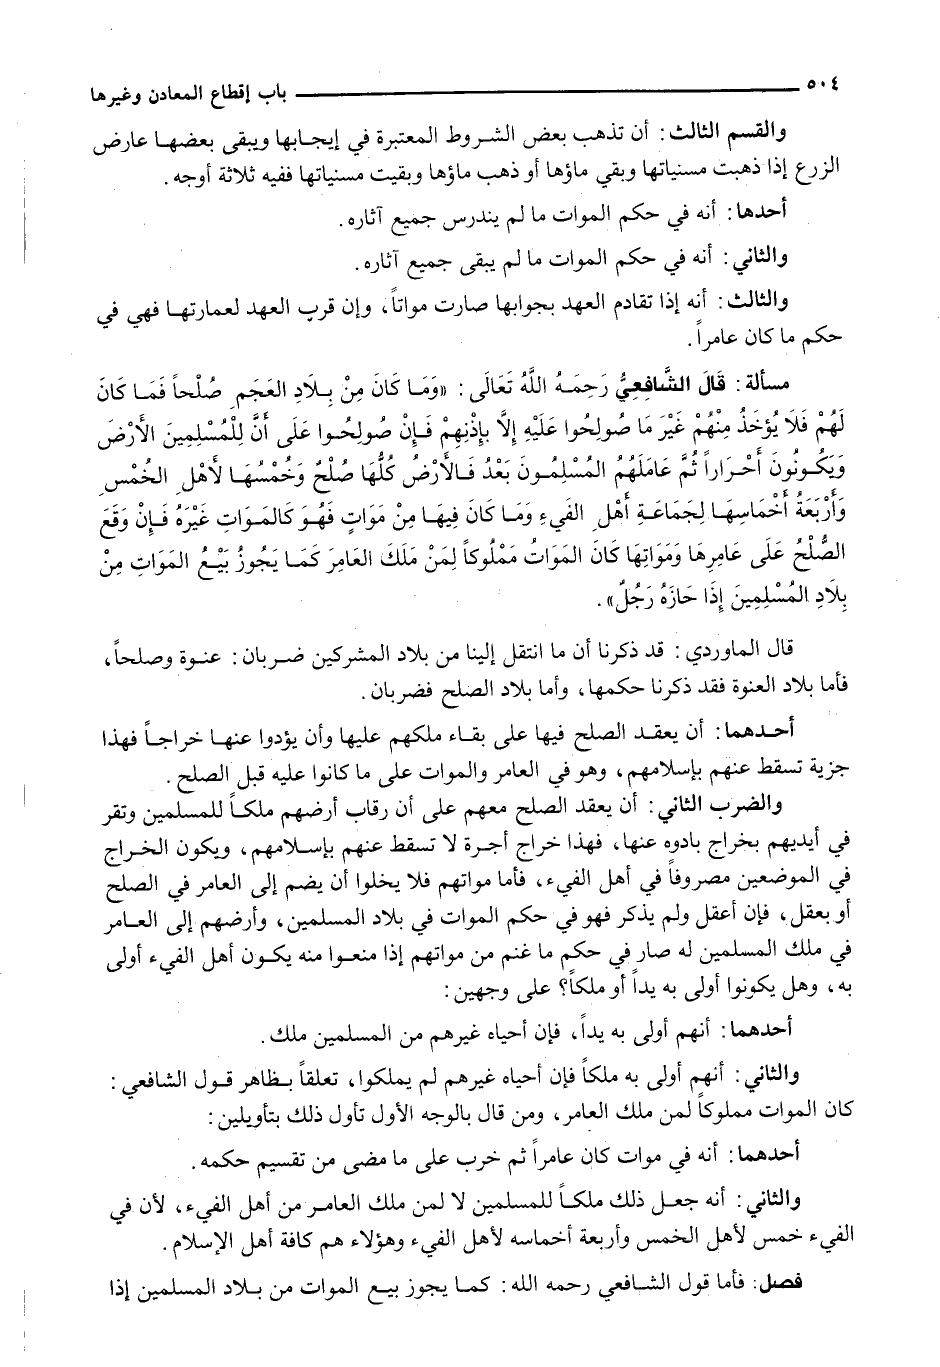 ٥٠٤ باب إقطاع المعادن وغيرها
والقسم الثالث: أن تذهب بعض الشروط المعتبرة في إيجابها ويبقى بعضها عارض
الزرع إذا ذهبت مسنياتها وبقي ماؤها أو ذهب ماؤها وبقيت مسنياتها ففيه ثلاثة أوجه.
أحدها: أنه في حكم الموات ما لم يندرس جميع آثاره.
والثاني: أنه في حكم الموات ما لم يبقى جميع آثاره.
والثالث: أنه إذا تقادم العهد بجوابها صارت مواتاً، وإن قرب العهد لعمارتها فهي في
حكم ما كان عامراً.
مسألة: قَالَ الشَّافِعِيُّ رَحِمَهُ اللَّهُ تَعَالَى: «وَمَا كَانَ مِنْ بِلَادِ العَجَمِ صُلْحاً فَمَا كَانَ
لَهُمْ فَلَا يُؤْخَذُ مِنْهُمْ غَيْرَ مَا صُولِحُوا عَلَيْهِ إِلَّا بِإِذْنِهِمْ فَإِنْ صُولِحُوا عَلَى أَنَّ لِلْمُسْلِمِينَ الأَرْضَ
وَيَكُونُونَ أَحْرَاراً ثُمَّ عَامَلَهُمُ المُسْلِمُونَ بَعْدُ فَالأَرْضُ كُلُّهَا صُلْحٌ وَخُمْسُهَا لأَهْلِ الخُمْسِ
وَأَرْبَعَةُ أَخْمَاسِهَا لِجَمَاعَةِ أَهْلِ الفَيءِ وَمَا كَانَ فِيهَا مِنْ مَوَاتٍ فَهُوَ كَالمَوَاتِ غَيْرَهُ فَإِنْ وَقَعَ
الصُّلْحُ عَلَى عَامِرِهَا وَمَوَاتِهَا كَانَ المَوَاتُ مَمْلُوكاً لِمَنْ مَلَكَ العَامِرَ كَمَا يَجُوزُ بَيْعُ المَوَاتِ مِنْ
بِلَادِ المُسْلِمِينَ إِذَا حَازَهُ رَجُلٌ».
قال الماوردي: قد ذكرنا أن ما انتقل إلينا من بلاد المشركين ضربان: عنوة وصلحاً،
فأما بلاد العنوة فقد ذكرنا حكمها، وأما بلاد الصلح فضربان.
أحدهما: أن يعقد الصلح فيها على بقاء ملكهم عليها وأن يؤدوا عنها خراجاً فهذا
جزية تسقط عنهم بإسلامهم، وهو في العامر والموات على ما كانوا عليه قبل الصلح.
والضرب الثاني: أن يعقد الصلح معهم على أن رقاب أرضهم ملكاً للمسلمين وتقر
في أيديهم بخراج بادوه عنها، فهذا خراج أجرة لا تسقط عنهم بإسلامهم، ويكون الخراج
في الموضعين مصروفاً في أهل الفيء، فأما مواتهم فلا يخلوا أن يضم إلى العامر في الصلح
أو بعقل، فإن أعقل ولم يذكر فهو في حكم الموات في بلاد المسلمين، وأرضهم إلى العامر
في ملك المسلمين له صار في حكم ما غنم من مواتهم إذا منعوا منه يكون أهل الفيء أولى
به، وهل يكونوا أولى به يداً أو ملكاً؟ على وجهين:
أحدهما: أنهم أولى به يداً، فإن أحياه غيرهم من المسلمين ملك.
والثاني: أنهم أولى به ملكاً فإن أحياه غيرهم لم يملكوا، تعلقاً بظاهر قول الشافعي:
كان الموات مملوكاً لمن ملك العامر، ومن قال بالوجه الأول تأول ذلك بتأويلين:
أحدهما: أنه في موات كان عامراً ثم خرب على ما مضى من تقسيم حكمه.
والثاني: أنه جعل ذلك ملكاً للمسلمين لا لمن ملك العامر من أهل الفيء، لأن في
الفيء خمس لأهل الخمس وأربعة أخماسه لأهل الفيء وهؤلاء هم كافة أهل الإسلام.
فصل: فأما قول الشافعي رحمه الله: كما يجوز بيع الموات من بلاد المسلمين إذا